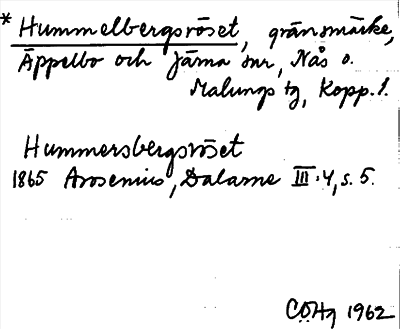 * Hummelbergsröset, gränsmärke,
Äppelbo och Järna snr, Nås o.
Malungs tg, Kopp. l.
Hummersbergsröset
1865 Arosenius, Dalarne III:4, s. 5.
CÖHg 1962